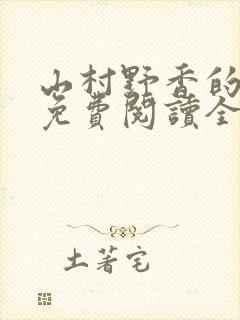 山村野香的
免費閱讀全
土著宅